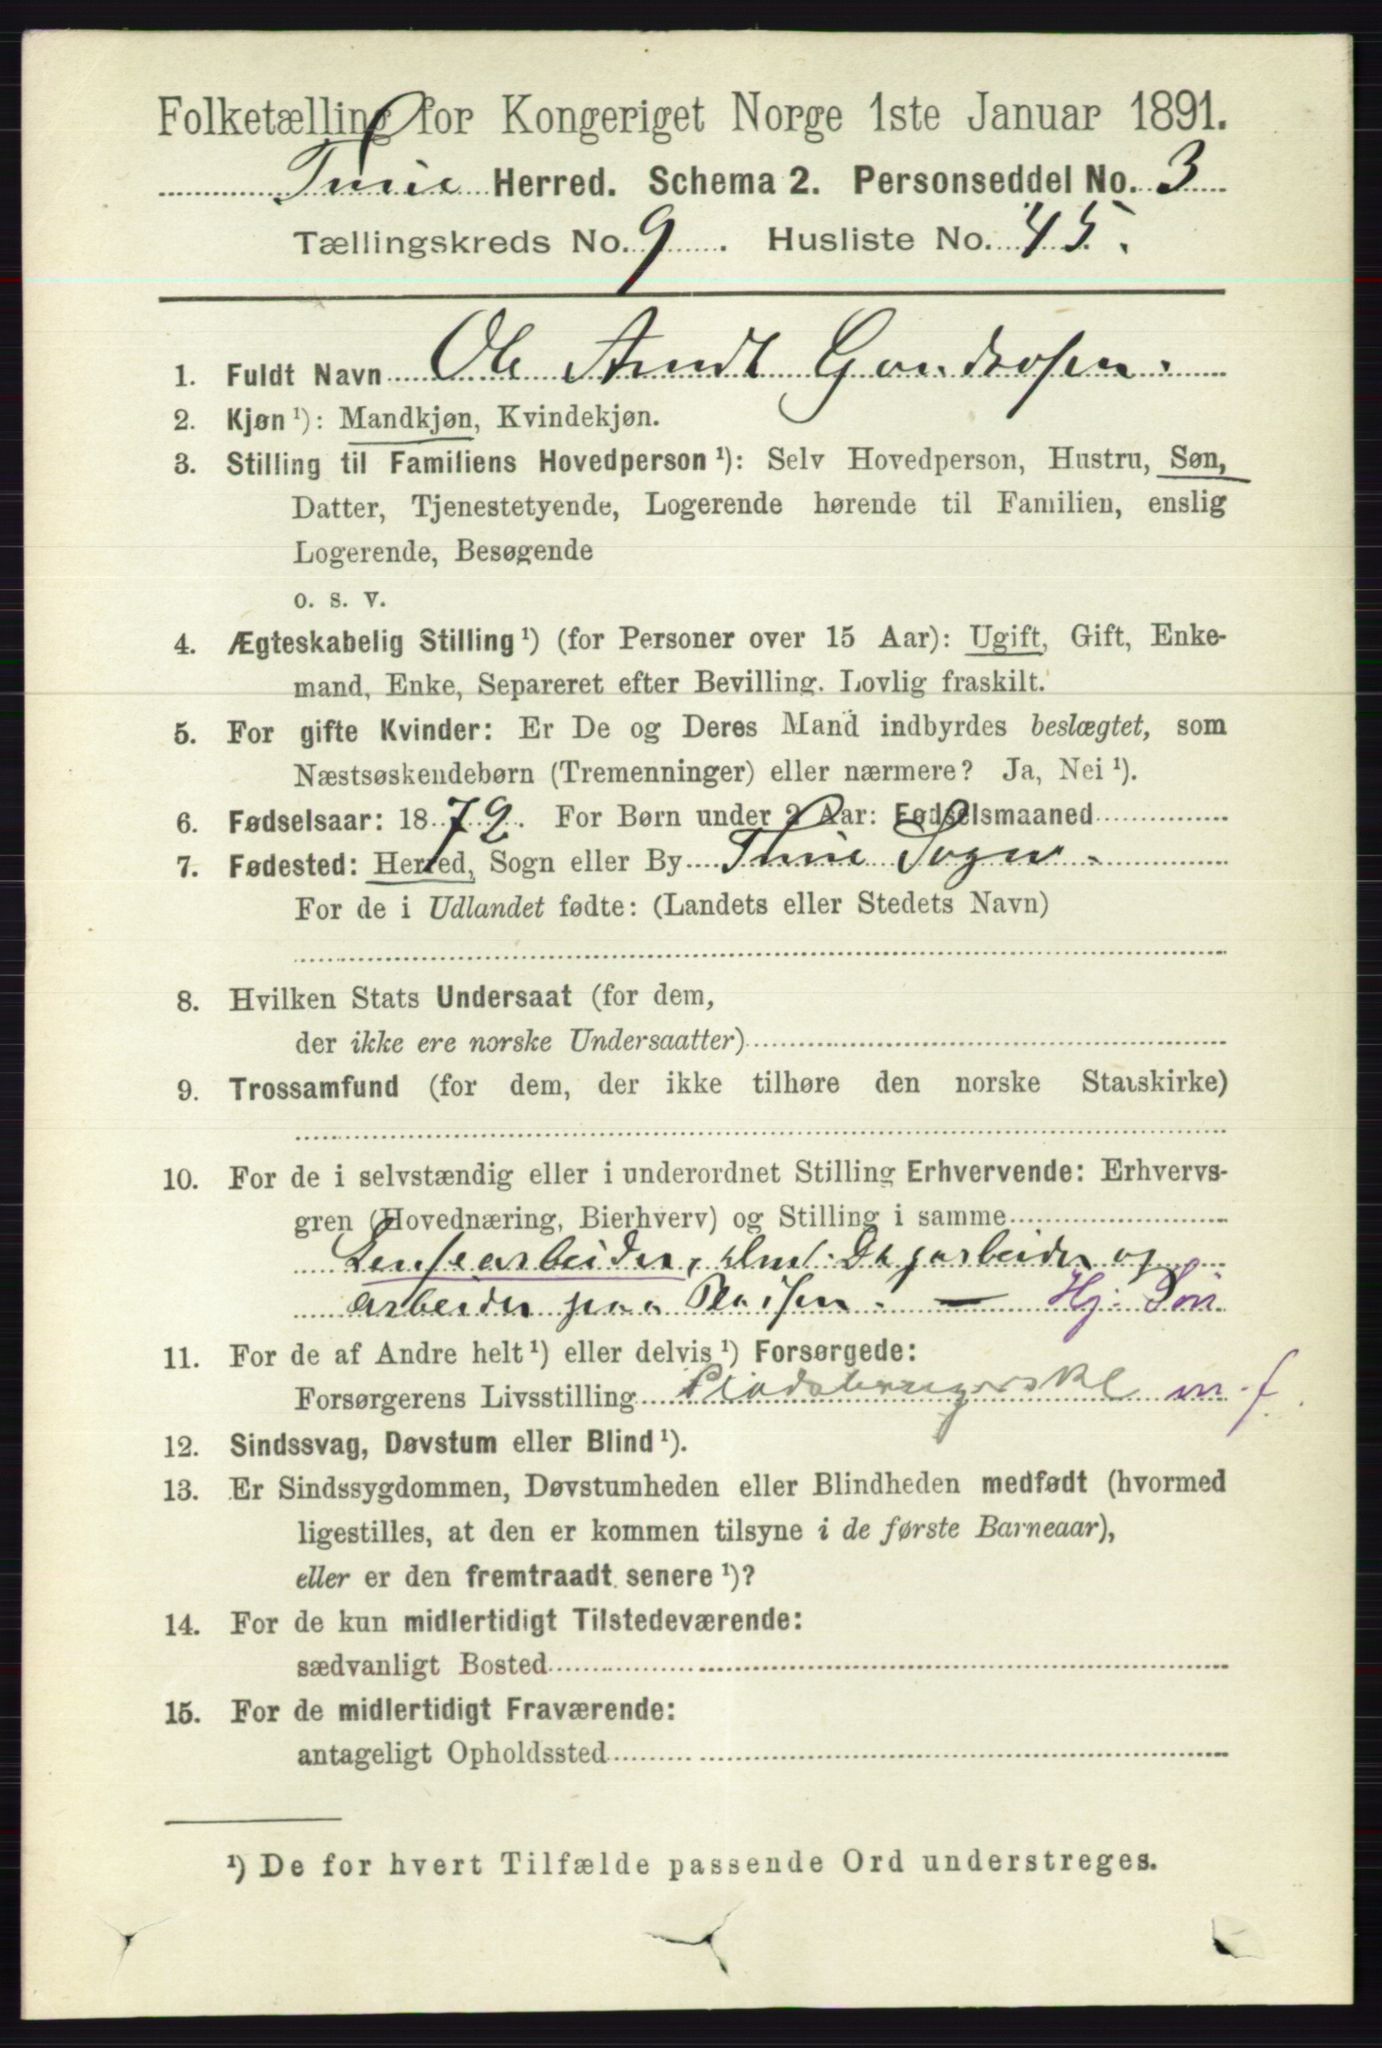 Folketælling for Kongeriget Norge 1ste Januar 1891.
Tune Herred. Schema 2. Personseddel No. 3
Tællingskreds No. 9. Husliste No. 45.
1. Fuldt Navn Ole Arndt Gundersen.
2. Kjøn ¹): Mandkjøn, Kvindekjøn.
3. Stilling til Familiens Hovedperson ¹): Selv Hovedperson, Hustru, Søn,
Datter, Tjenestetyende, Logerende hørende til Familien, enslig
Logerende, Besøgende
o. s. v.
4. Ægteskabelig Stilling ¹) (for Personer over 15 Aar): Ugift, Gift, Enke-
mand, Enke, Separeret efter Bevilling. Lovlig fraskilt.
5. For gifte Kvinder: Er De og Deres Mand indbyrdes beslægtet, som
Næstsøskendebørn (Tremenninger) eller nærmere? Ja, Nei ¹).
6. Fødselsaar: 1872. For Børn under 2 Aar: Fødselsmaaned
7. Fødested: Herred, Sogn eller By Thune Sogn.
For de i Udlandet fødte: (Landets eller Stedets Navn)
8. Hvilken Stats Undersaat (for dem,
der ikke ere norske Undersaatter)
9. Trossamfund (for dem, der ikke tilhøre den norske Statskirke)
10. For de i selvstændig eller i underordnet Stilling Erhvervende: Erhvervs-
gren (Hovednæring, Bierhverv) og Stilling i samme
Lensearbeider, alm. Dagarbeider og
arbeider paa Pladsen. — Hj: Søn
11. For de af Andre helt ¹) eller delvis ¹) Forsørgede:
Forsørgerens Livsstilling Pladsbrugerske m. f.
12. Sindssvag, Døvstum eller Blind ¹).
13. Er Sindssygdommen, Døvstumheden eller Blindheden medfødt (hvormed
ligestilles, at den er kommen tilsyne i de første Barneaar),
eller er den fremtraadt senere ¹)?
14. For de kun midlertidigt Tilstedeværende:
sædvanligt Bosted
15. For de midlertidigt Fraværende:
antageligt Opholdssted
¹) De for hvert Tilfælde passende Ord understreges.